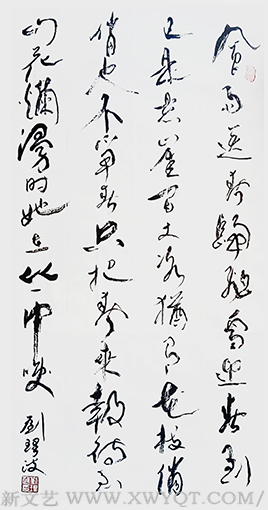 风雨送春歸飛雪迎春到
已是悬崖百丈冰猶有花枝俏
俏也不争春只把春來報待到
山花爛漫时她在丛中笑
劉
新文艺 WWW.XWYQT.COM/